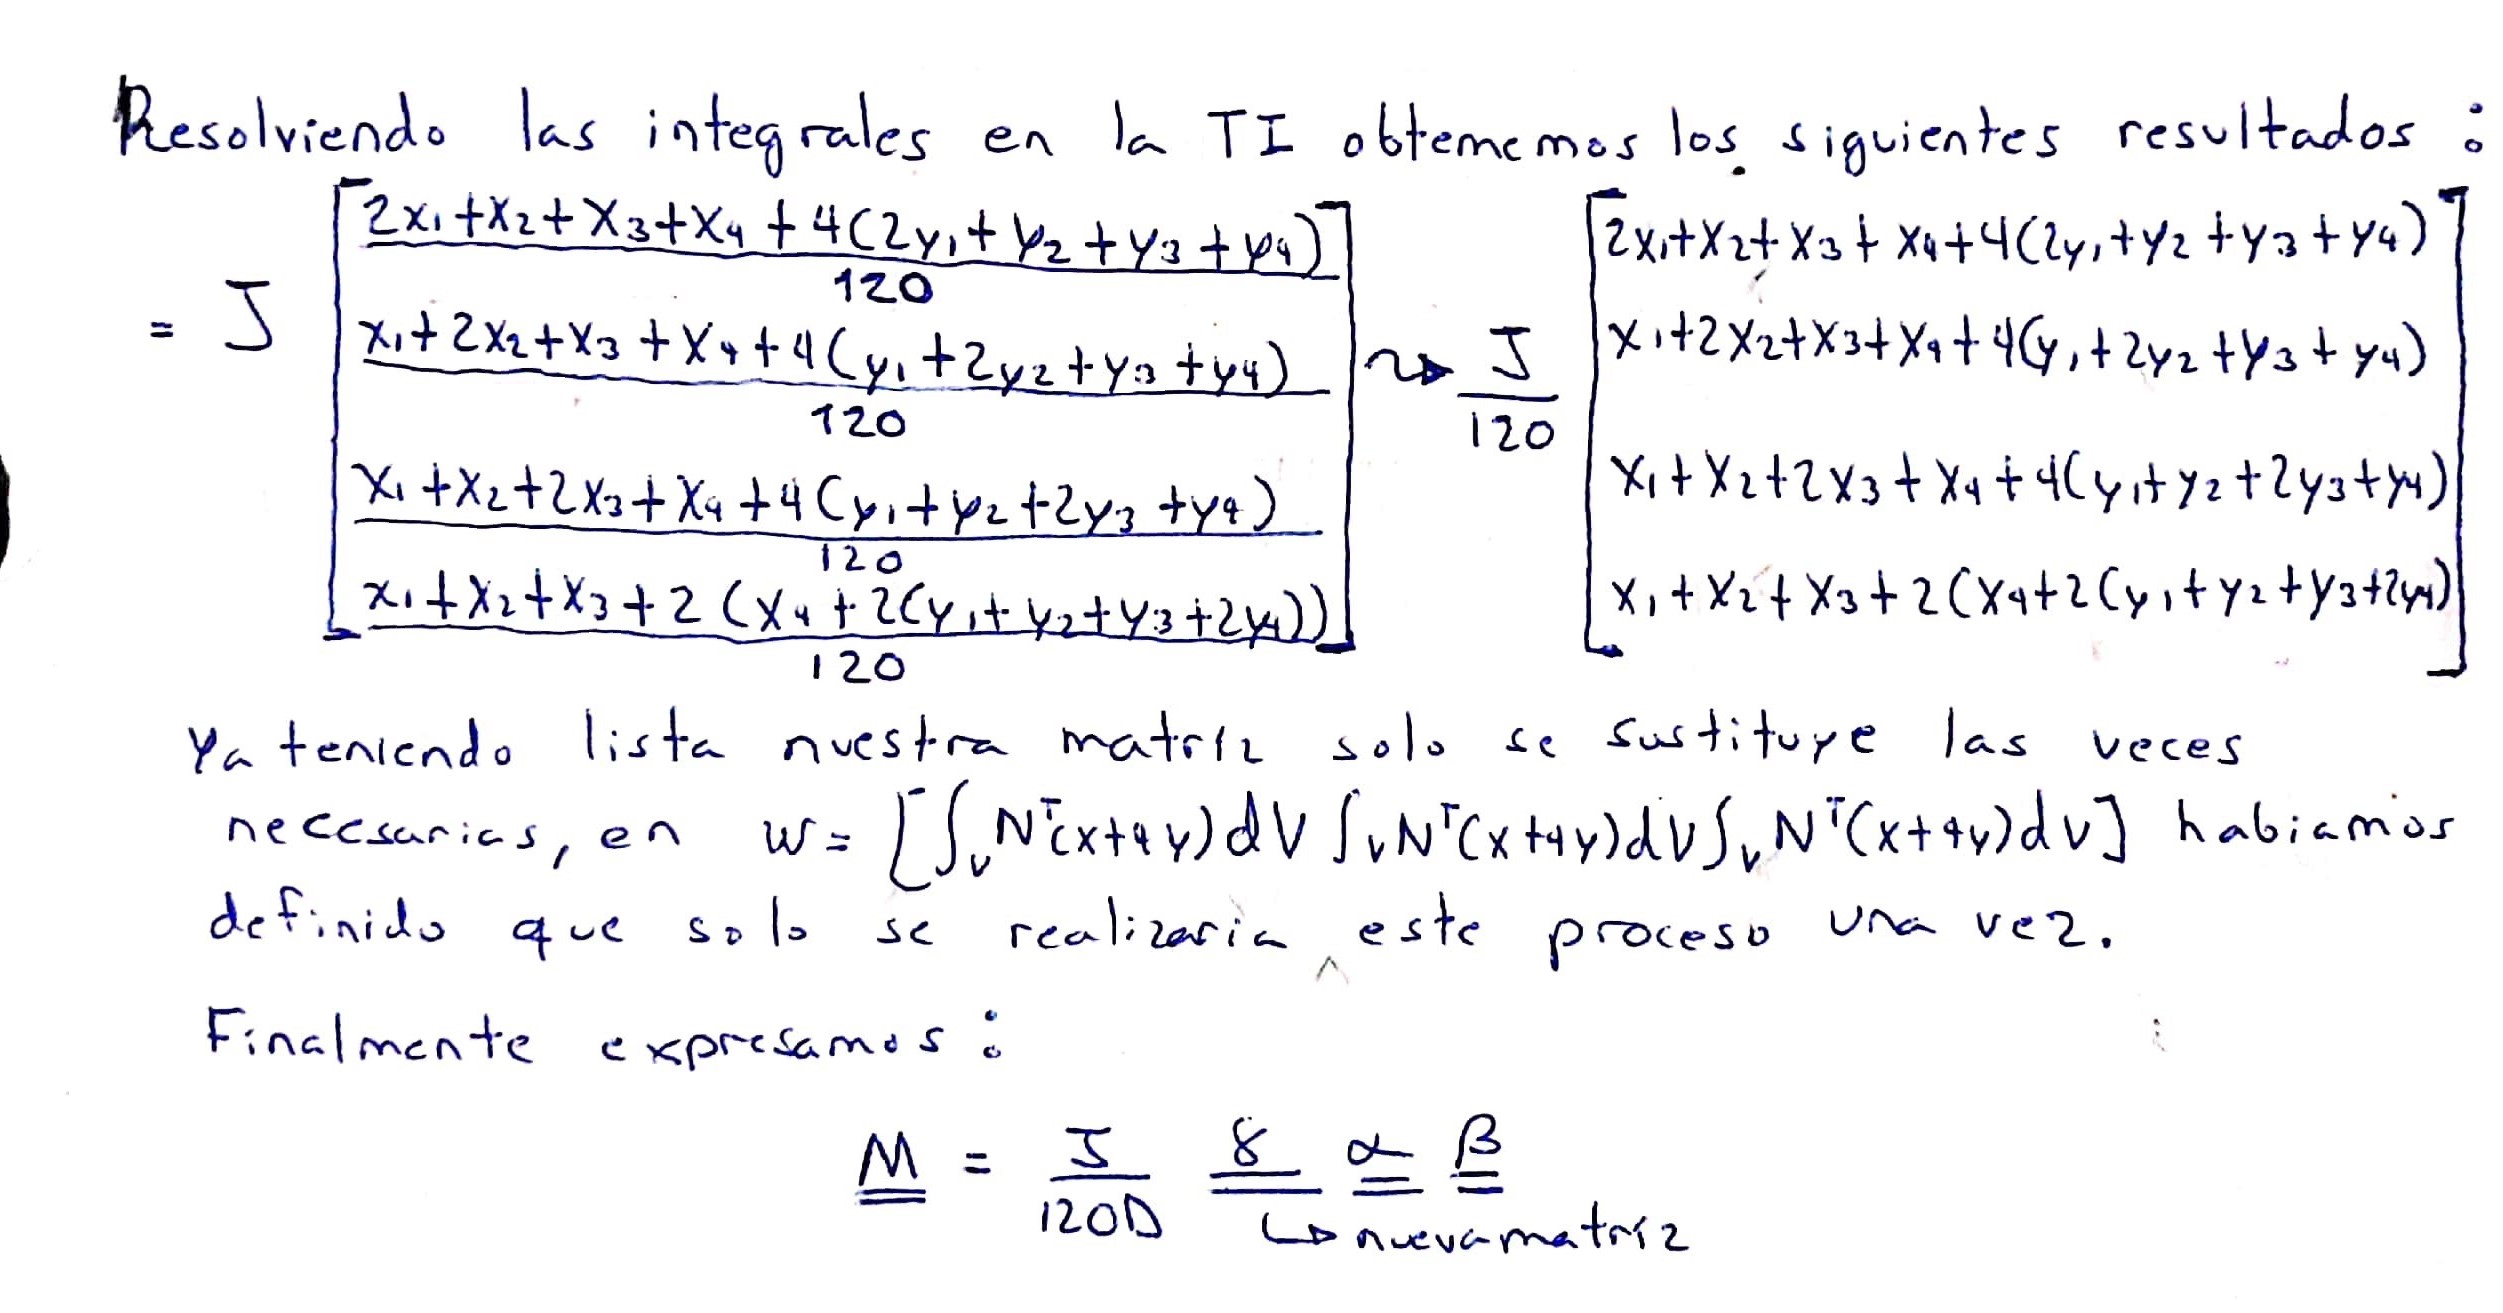 Resolviendo las integrales en la TI obtememos los siguientes resultados:
= J [ (2x₁+x₂+x₃+x₄+4(2y₁+y₂+y₃+y₄))/120 ] ⇝ J/120 [ 2x₁+x₂+x₃+x₄+4(2y₁+y₂+y₃+y₄) ]
[ (x₁+2x₂+x₃+x₄+4(y₁+2y₂+y₃+y₄))/120 ] [ x₁+2x₂+x₃+x₄+4(y₁+2y₂+y₃+y₄) ]
[ (x₁+x₂+2x₃+x₄+4(y₁+y₂+2y₃+y₄))/120 ] [ x₁+x₂+2x₃+x₄+4(y₁+y₂+2y₃+y₄) ]
[ (x₁+x₂+x₃+2(x₄+2(y₁+y₂+y₃+2y₄)))/120 ] [ x₁+x₂+x₃+2(x₄+2(y₁+y₂+y₃+2y₄) ]
Ya teniendo lista nuestra matriz solo se sustituye las veces
necesarias, en w= [∫ᵥNᵀ(x+4y)dV ∫ᵥNᵀ(x+4y)dV ∫ᵥNᵀ(x+4y)dV] habiamos
definido que solo se realizaria este proceso una vez.
Finalmente expresamos:
M = J/120D γ α β
↳ nueva matríz